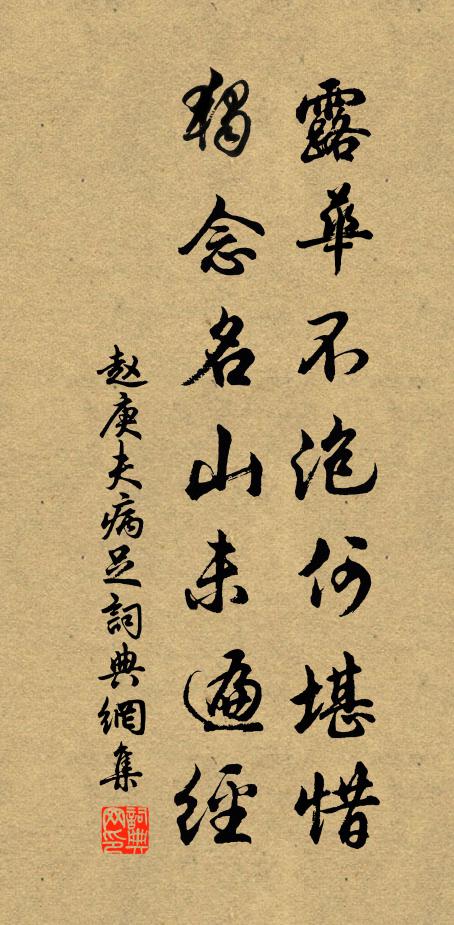 露華不泡何堪惜
獨念名山未遍經
赵庚夫病足詞典網集
詞典網印